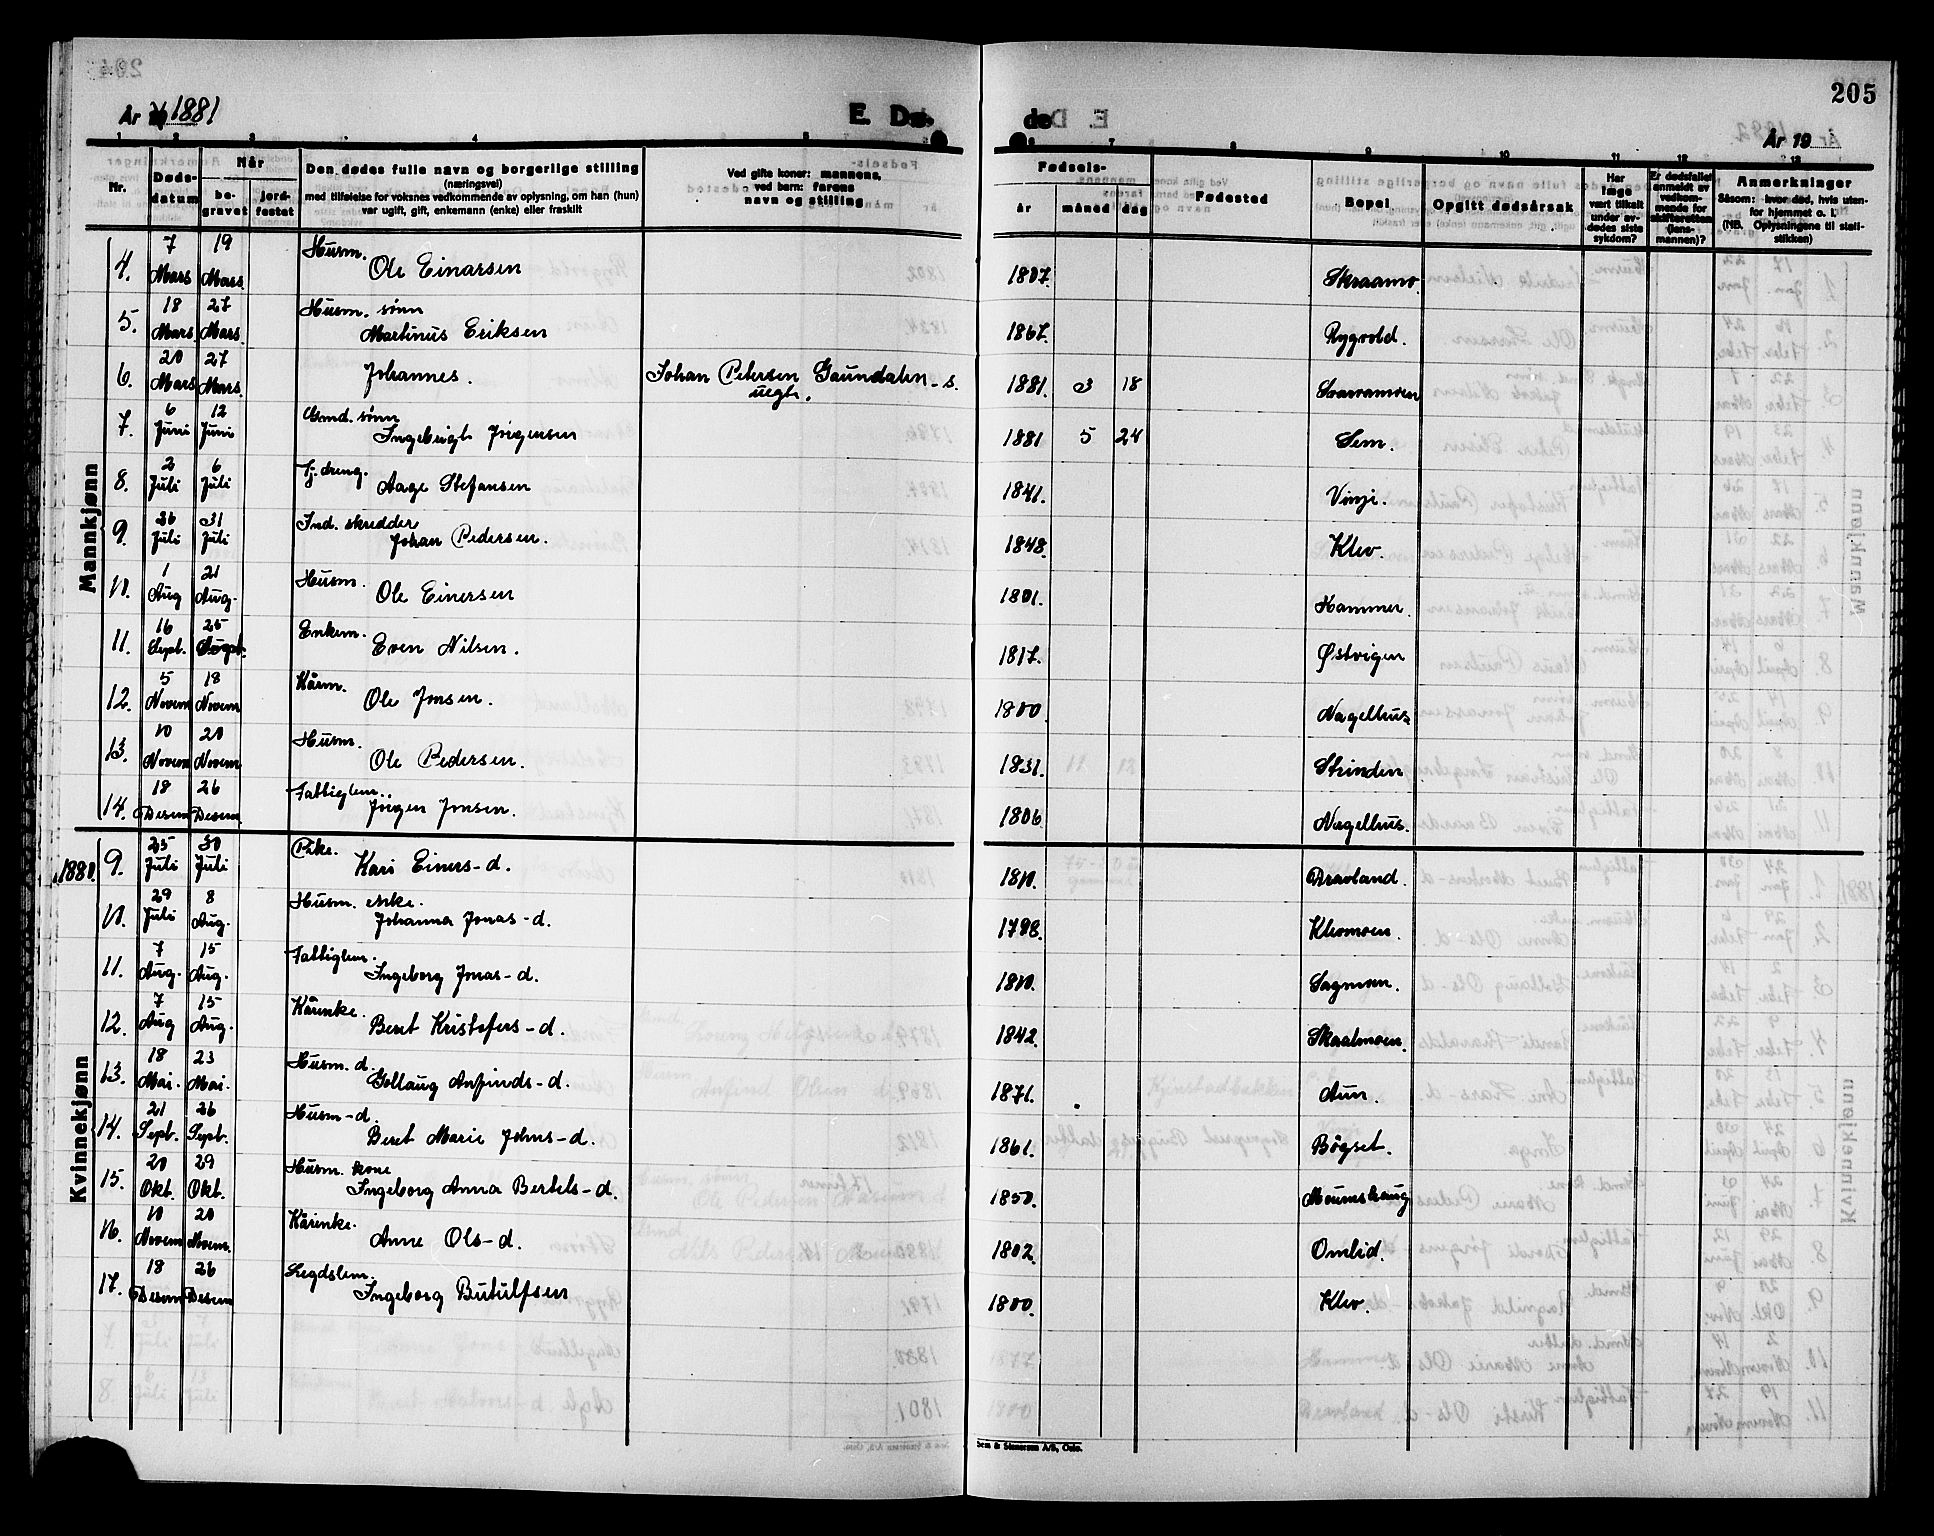 205
År 1881
E. Døde
År 19
1 2 3 4 5 6 7 8 9 10 11 12 13
Nr.
Døds-datum
Når
be-gravet
jord-festet
Den dødes fulle navn og borgerlige stilling
(næringsvei)
med tilføielse for voksnes vedkommende av oplysning, om han (hun)
var ugift, gift, enkemann (enke) eller fraskilt
Ved gifte koner: mannens,
ved barn: farens
navn og stilling
Fødsels-
år måned dag
Fødested
Bopel
Opgitt dødsårsak
Har læge vært tilkalt under av-dødes siste sykdom?
Er dødsfallet anmeldt av vedkom-mende for skifteretten (lens-mannen)?
Anmerkninger
Såsom: hvor død, hvis uten-
for hjemmet o. l.
(NB. Oplysningene til stati-
stikken)
Mannkjønn
4. 7 Mars 19 Mars Husm. Ole Einarsen 1807. Skraamo.
5. 18 Mars 27 Mars Husm. sønn Martinus Eriksen 1867. Rygvold.
6. 20 Mars 27 Mars. Johannes. Johan Petersen Gaundalen - s. uegte. 1881. 3 18 Svarvamoen
7. 6 Juni 12 Juni Gmd. sønn Ingebrigt Jörgensen 1881 5 24 Sem.
8. 2 Juli 6 Juli Tj. dreng. Aage Stefansen 1841. Vinje.
9. 26 Juli 31 Juli Ind. skredder Johan Pedersen. 1848. Klev.
10. 1 Aug 21 Aug. Husm. Ole Einersen 1801. Hammer.
11. 16 Sept. 25 Sept. Enkem. Even Nilsen. 1817. Østvigen
12. 5 Novem 18 Novem Kårm. Ole Jonsen. 1800 Nagelhus
13. 10 Novem 20 Novem Husm. Ole Pedersen. 1831. Strinden
14. 18 Desem 26 Desem. Fattiglem. Jörgen Jonsen. 1806 Nagelhus.
Kvinnekjønn
1880. 9. 25 Juli 30 Juli Pike. Kari Einers-d. 1810. Bravland.
10. 29 Juli 8 Aug. Husm. enke. Johanna Jonas-d. 1798. Klevmoen.
11. 7 Aug. 15 Aug. Fattiglem. Ingeborg Jonas-d. 1810. Sagmoen.
12. 7 Aug 15 Aug. Kårenke. Beret Kristofers-d. 1842. Skaalmoen.
13. 18 Mai. 23 Mai. Husm. d. Gollaug Anfinds-d. 1871. Aun.
14. 21 Sept. 26 Sept. Husm-d. Beret Marie Johns-d. 1861. Bögset.
15. 20 Okt. 29 Okt. Husm. kone Ingeborg Anna Bertels-d. 1850. Moumshaug
16. 10 Novem 20 Novem. Kårenke. Anne Ols-d. 1802. Omlid.
17. 18 Desem 26 Desem Legdslem. Ingeborg Butulfsen 1800. Klev.
Sem & Stenersen A/S, Oslo.